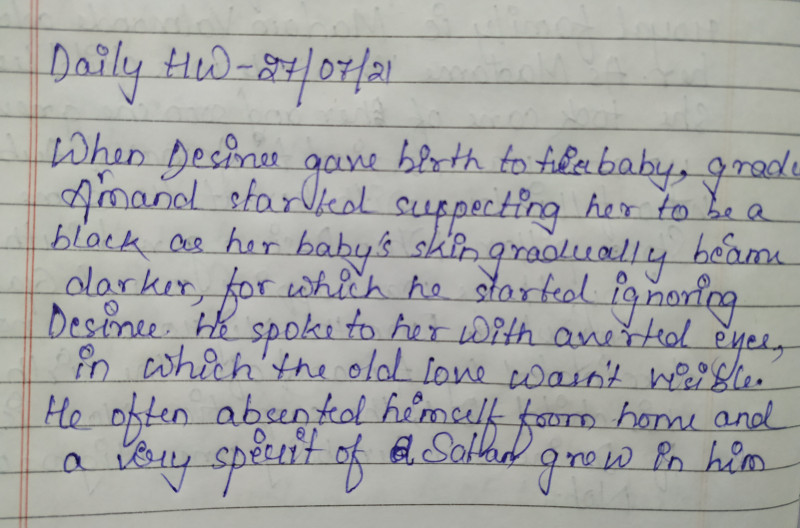 Daily HW-27/07/21
When Desiree gave birth to her baby, gradu
Armand started suppecting her to be a
black as her baby's skin gradually becam
darker, for which he started ignoring
Desiree. He spoke to her with averted eyes,
in which the old love wasn't visible.
He often absented himself from home and
a very spirit of Satan grow in him